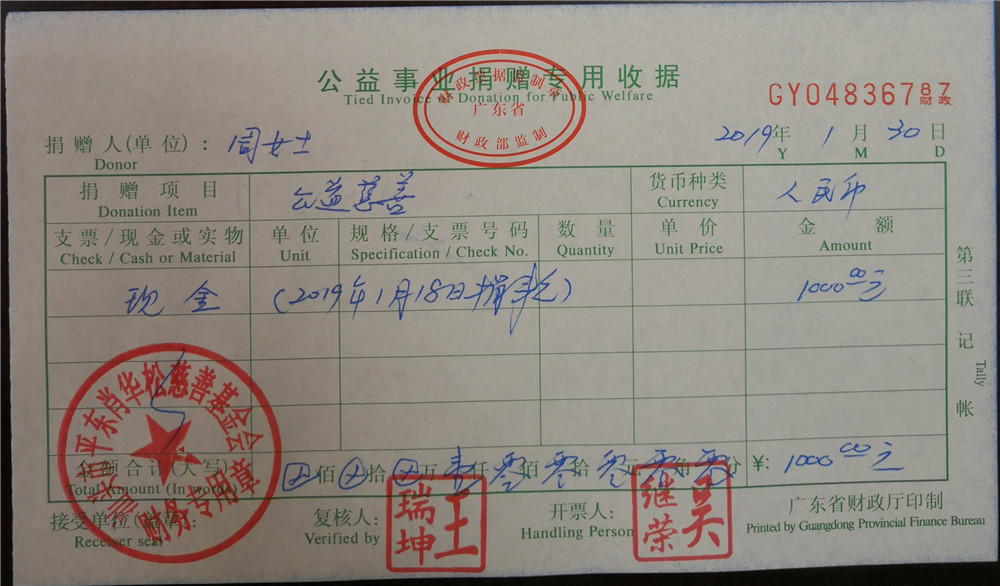 公益事业捐赠专用收据
Tied Invoice of Donation for Public Welfare
财政票据监制章
广东省
财政部监制
GY04836787
财政
捐赠人(单位)：周女士
Donor
2019年 1月 30日
Y M D
捐赠项目 公益慈善 货币种类 人民币
Donation Item Currency
支票/现金或实物 单位 规格/支票号码 数量 单价 金额
Check / Cash or Material Unit Specification / Check No. Quantity Unit Price Amount
现金 (2019年1月18日捐) 1000.00元
金额合计(大写) 佰 拾 万 壹仟 零佰 零拾 零元 零角 零分 ¥: 1000.00元
Total Amount (In words)
平东肖华松慈善基金会
财务专用章
接受单位(盖章):
Receiver seal
复核人:
Verified by
王瑞坤
开票人:
Handling Person
吴继荣
广东省财政厅印制
Printed by Guangdong Provincial Finance Bureau
第三联 记帐
Tally